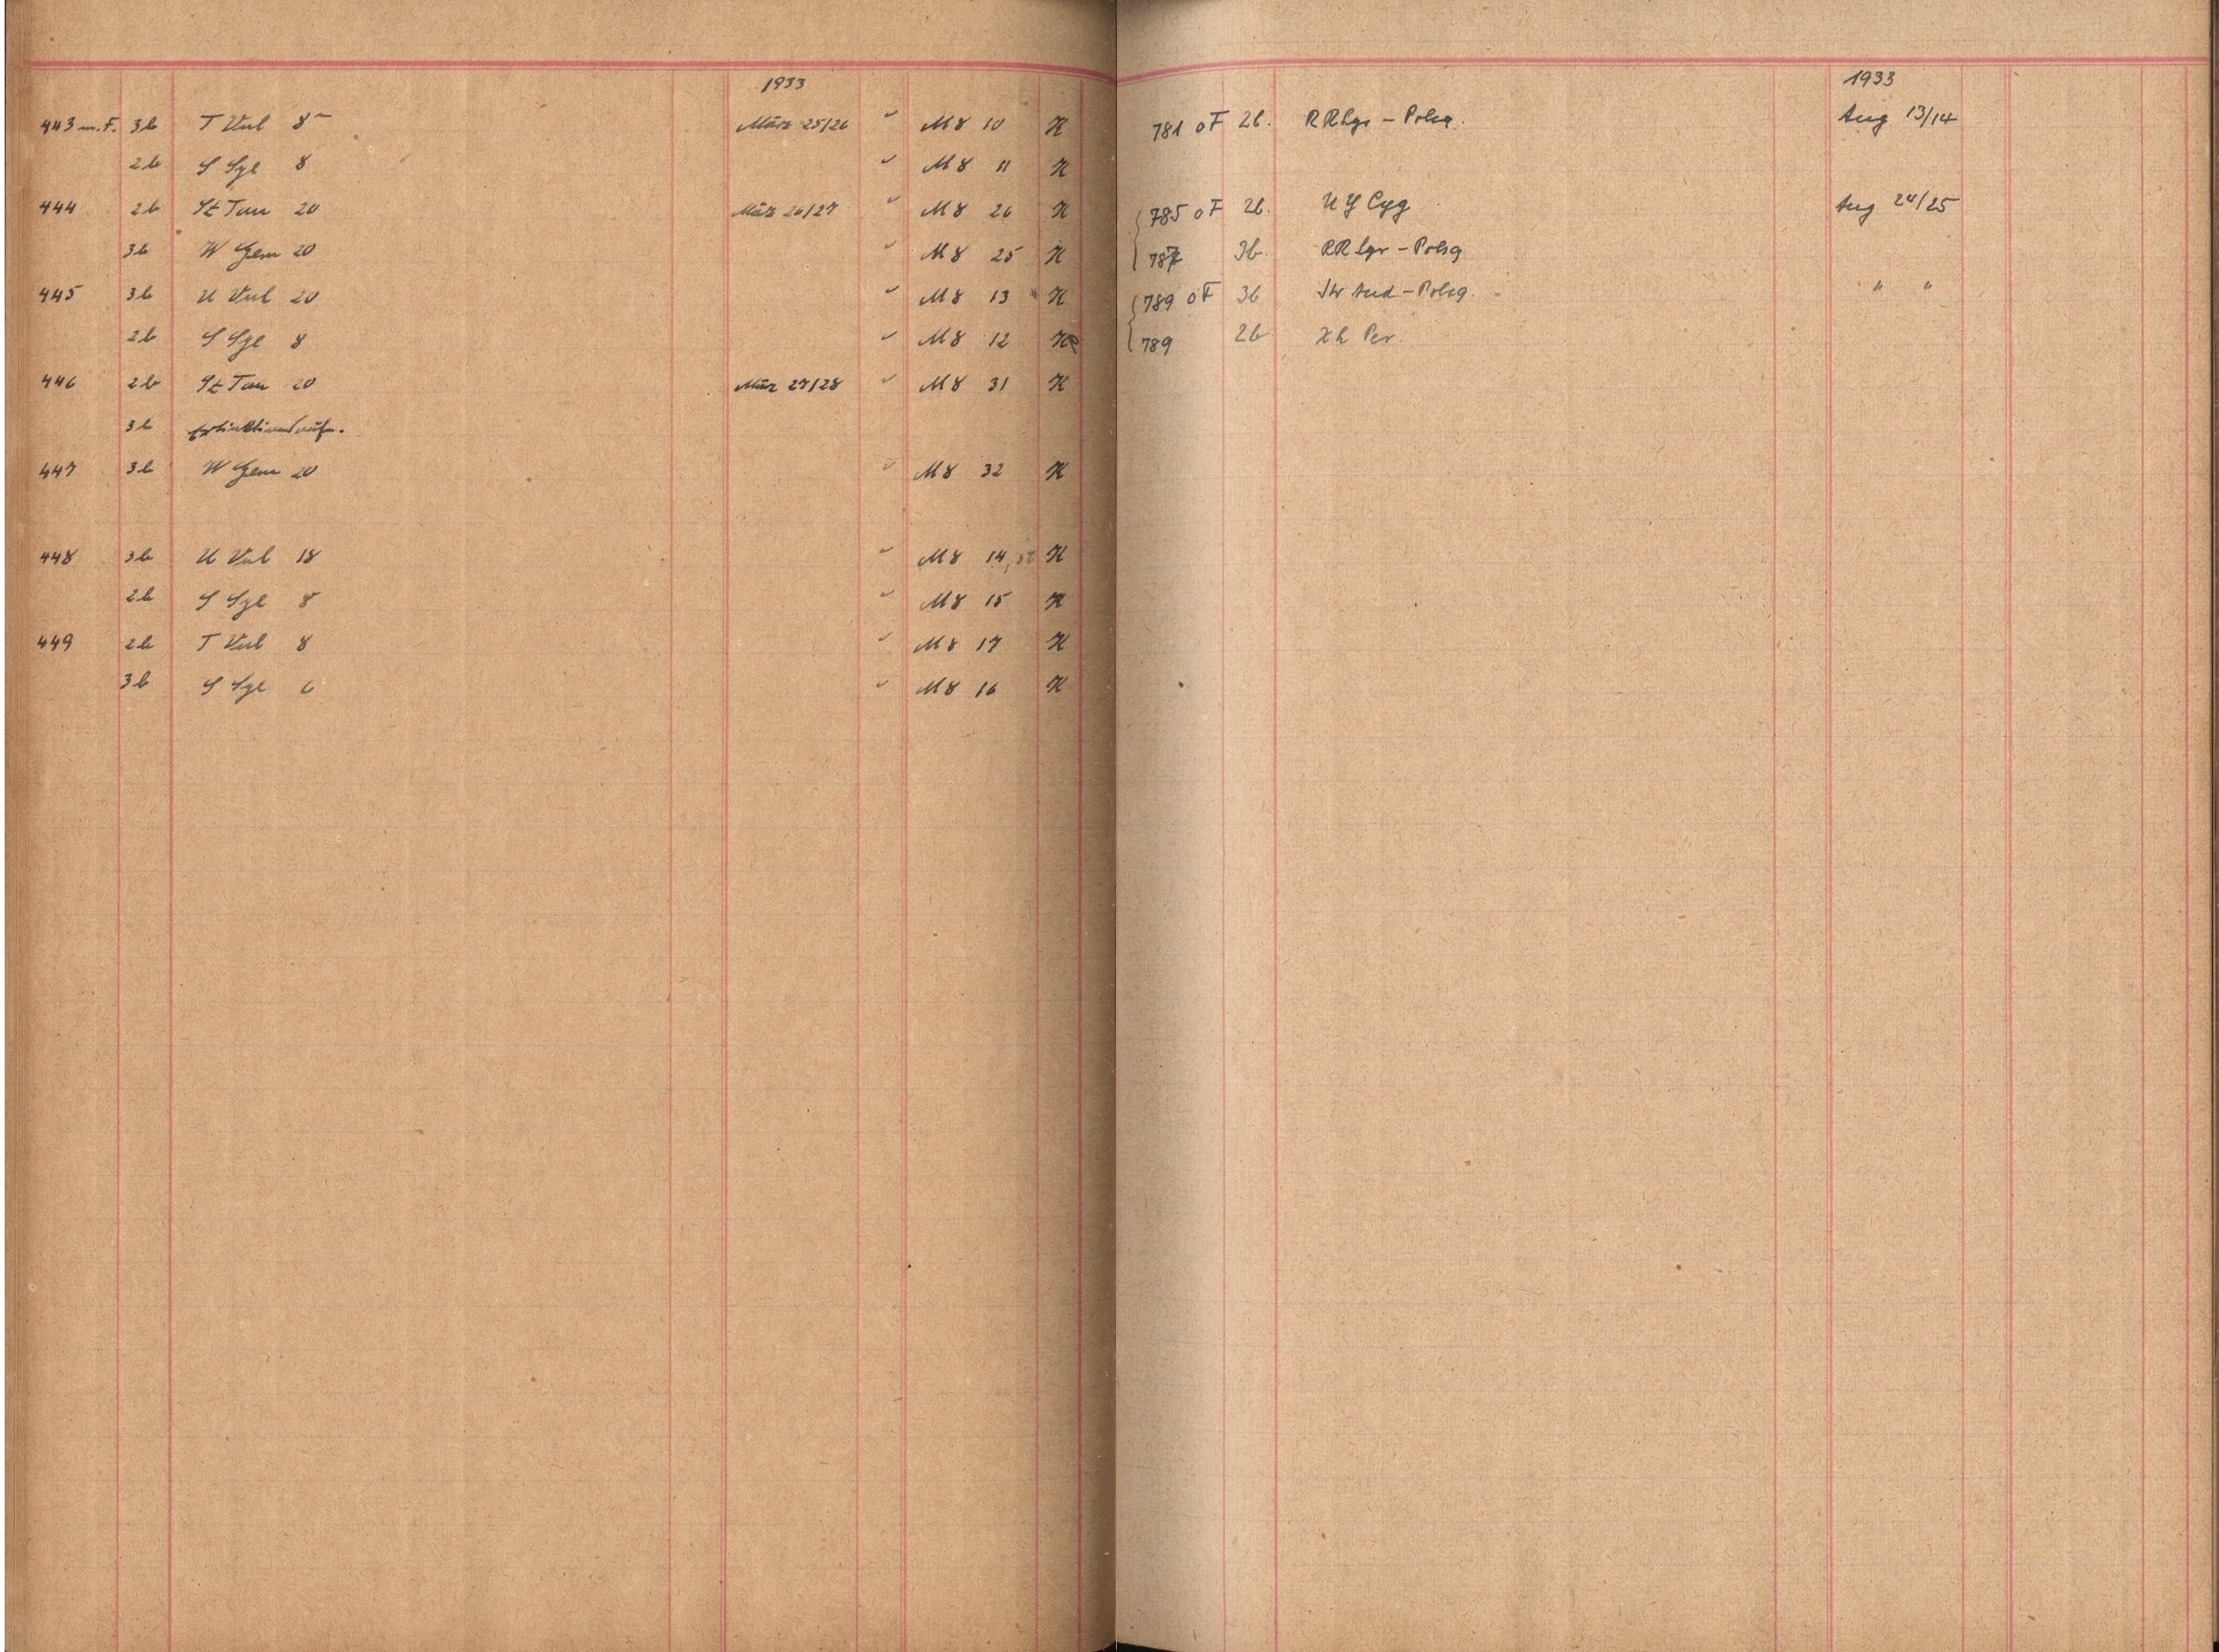 1933
443 m.F. 3b T Vul 8m März 25/26 M8 10 H
2b S Sge 8 M8 11 H
444 2b St Tau 20 März 26/27 M8 26 H
3b W Gem 20 M8 25 H
445 3b U Vul 20 M8 13 H
2b S Sge 8 M8 12 H
446 2b St Tau 20 März 27/28 M8 31 H
3b
447 3b W Gem 20 M8 32 H
448 3b U Vul 18 M8 14, H
2b S Sge 8 M8 15 H
449 2b T Vul 8 M8 17 H
3b S Sge 6 M8 16 H
1933
781 oF 2b. RR Lyr - Polsq. Aug 13/14
785 oF 2b. UY Cyg Aug 24/25
787 3b RR Lyr - Polsq
789 oF 3b And - Polsq. " "
789 2b χh Per.